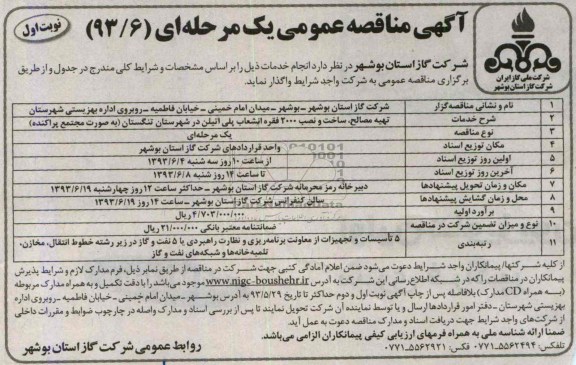 نوبت اول
آگهی مناقصه عمومی یک مرحله‌ای (۹۳/۶)
شرکت ملی گاز ایران
شرکت گاز استان بوشهر
شرکت گاز استان بوشهر در نظر دارد انجام خدمات ذیل را بر اساس مشخصات و شرایط کلی مندرج در جدول و از طریق
برگزاری مناقصه عمومی به شرکت واجد شرایط واگذار نماید.
۱ نام و نشانی مناقصه‌گزار شرکت گاز استان بوشهر - بوشهر - میدان امام خمینی - خیابان فاطمیه - روبروی اداره بهزیستی شهرستان
۲ شرح خدمات تهیه مصالح، ساخت و نصب ۲۰۰۰ فقره انشعاب پلی اتیلن در شهرستان تنگستان (به صورت مجتمع پراکنده)
۳ نوع مناقصه یک مرحله‌ای
۴ مکان توزیع اسناد واحد قراردادهای شرکت گاز استان بوشهر
۵ اولین روز توزیع اسناد از ساعت ۱۰ روز سه شنبه ۱۳۹۳/۶/۴
۶ آخرین روز توزیع اسناد تا ساعت ۱۴ روز شنبه ۱۳۹۳/۶/۸
۷ مکان و زمان تحویل پیشنهادها دبیرخانه رمز محرمانه شرکت گاز استان بوشهر - حداکثر ساعت ۱۲ روز چهارشنبه ۱۳۹۳/۶/۱۹
۸ محل و زمان گشایش پیشنهادها سالن کنفرانس شرکت گاز استان بوشهر - ساعت ۱۴ روز ۱۳۹۳/۶/۱۹
۹ برآورد اولیه ۴/۷۰۳/۰۰۰/۰۰۰ ریال
۱۰ نوع و میزان تضمین شرکت در مناقصه ضمانتنامه معتبر بانکی ۲۱/۰۰۰/۰۰۰ ریال
۱۱ رتبه‌بندی ۵ تأسیسات و تجهیزات از معاونت برنامه‌ریزی و نظارت راهبردی یا ۵ نفت و گاز در زیر رشته خطوط انتقال، مخازن،
تلمبه‌خانه‌ها و شبکه‌های نفت و گاز
از کلیه شرکتها، پیمانکاران واجد شرایط دعوت می‌شود ضمن اعلام آمادگی کتبی جهت شرکت در مناقصه از طریق نمابر ذیل، فرم مدارک لازم و شرایط پذیرش
پیمانکاران در مناقصات را که در شبکه اطلاع رسانی این شرکت به آدرس www.nigc-boushehr.ir موجود می‌باشد را با دقت تکمیل و به همراه مدارک مربوطه
(به همراه CD مدارک) بلافاصله پس از چاپ آگهی نوبت اول و دوم حداکثر تا تاریخ ۹۳/۵/۲۹ به آدرس بوشهر - میدان امام خمینی - خیابان فاطمیه - روبروی اداره
بهزیستی شهرستان - دفتر امور قراردادها ارسال و یا توسط نماینده آن شرکت تحویل نمایند تا پس از بررسی اسناد و مدارک واصله در چارچوب ضوابط و مقررات داخلی
از شرکت‌های واجد شرایط جهت دریافت اسناد و مدارک مناقصه دعوت به عمل آید.
ضمنا ارائه شناسه ملی به همراه فرمهای ارزیابی کیفی پیمانکاران الزامی می‌باشد.
تلفن: ۵۵۶۲۴۹۴-۰۷۷۱ فکس: ۵۵۶۲۹۲۱-۰۷۷۱
روابط عمومی شرکت گاز استان بوشهر